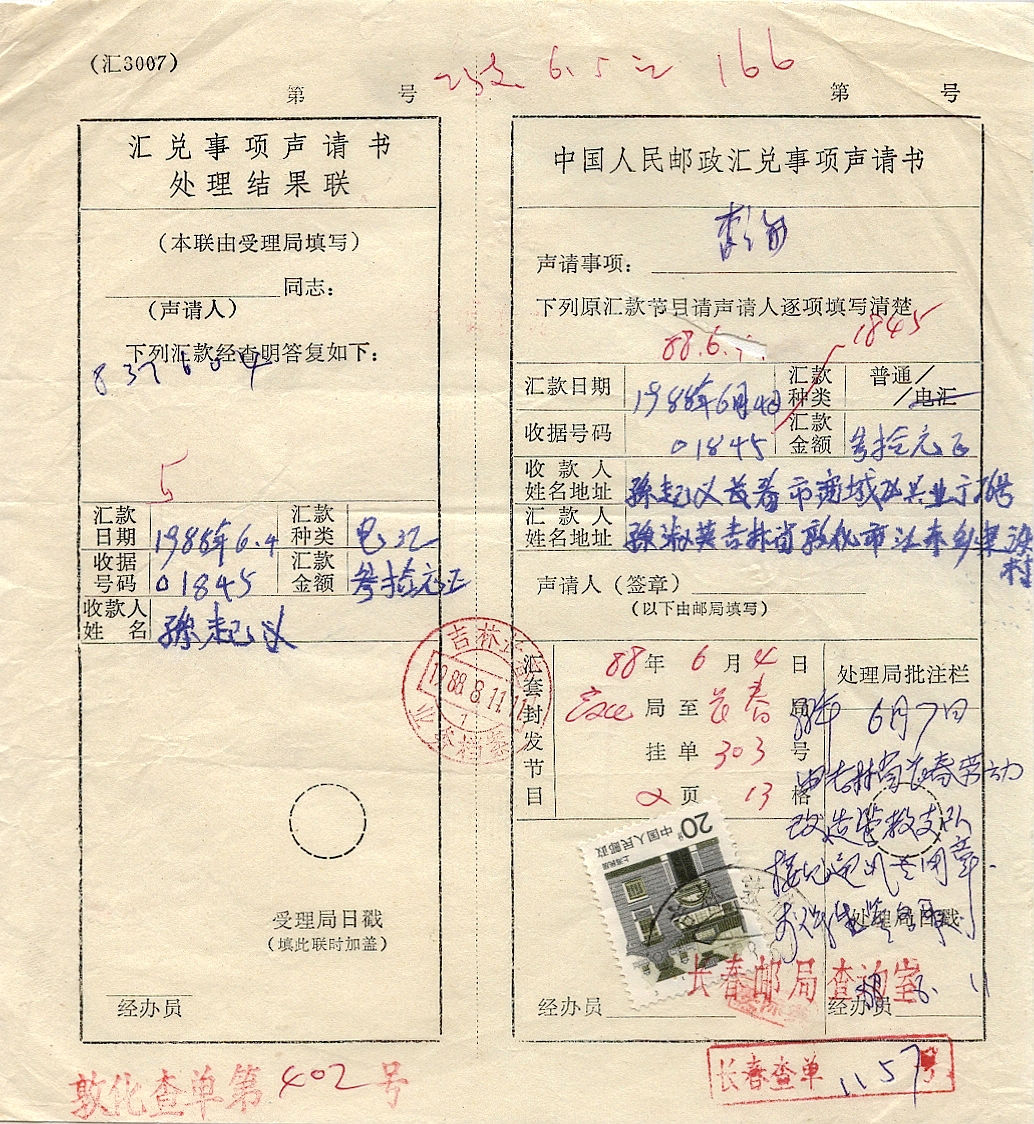 (汇3007)
6.5 166
第 号
第 号
汇兑事项声请书
处理结果联
(本联由受理局填写)
同志:
(声请人)
下列汇款经查明答复如下:
837604
5
汇款日期 1988年6.4 汇款种类 电汇
收据号码 01845 汇款金额 叁拾元正
收款人姓名 孙起义
受理局日戳
(填此联时加盖)
经办员
敦化查单第402号
中国人民邮政汇兑事项声请书
声请事项:
下列原汇款节目请声请人逐项填写清楚
88.6. 1845
汇款日期 1988年6月4日 汇款种类 普通/
/电汇
收据号码 01845 汇款金额 叁拾元正
收款人姓名地址 孙起义 长春市
汇款人姓名地址 孙淑英 吉林省敦化市江东乡
声请人(签章)
(以下由邮局填写)
汇套封发节目
88年6月4日
局至长春局
挂单303号
2页13格
吉林
1988.8.11.11
1
业务档案
处理局批注栏
88年6月7日
由吉林省长春劳动
改造管教支队
专用章
处理局日戳
20分
中国人民邮政
上海民居
长春邮局查询室
经办员
经办员
长春查单1157号